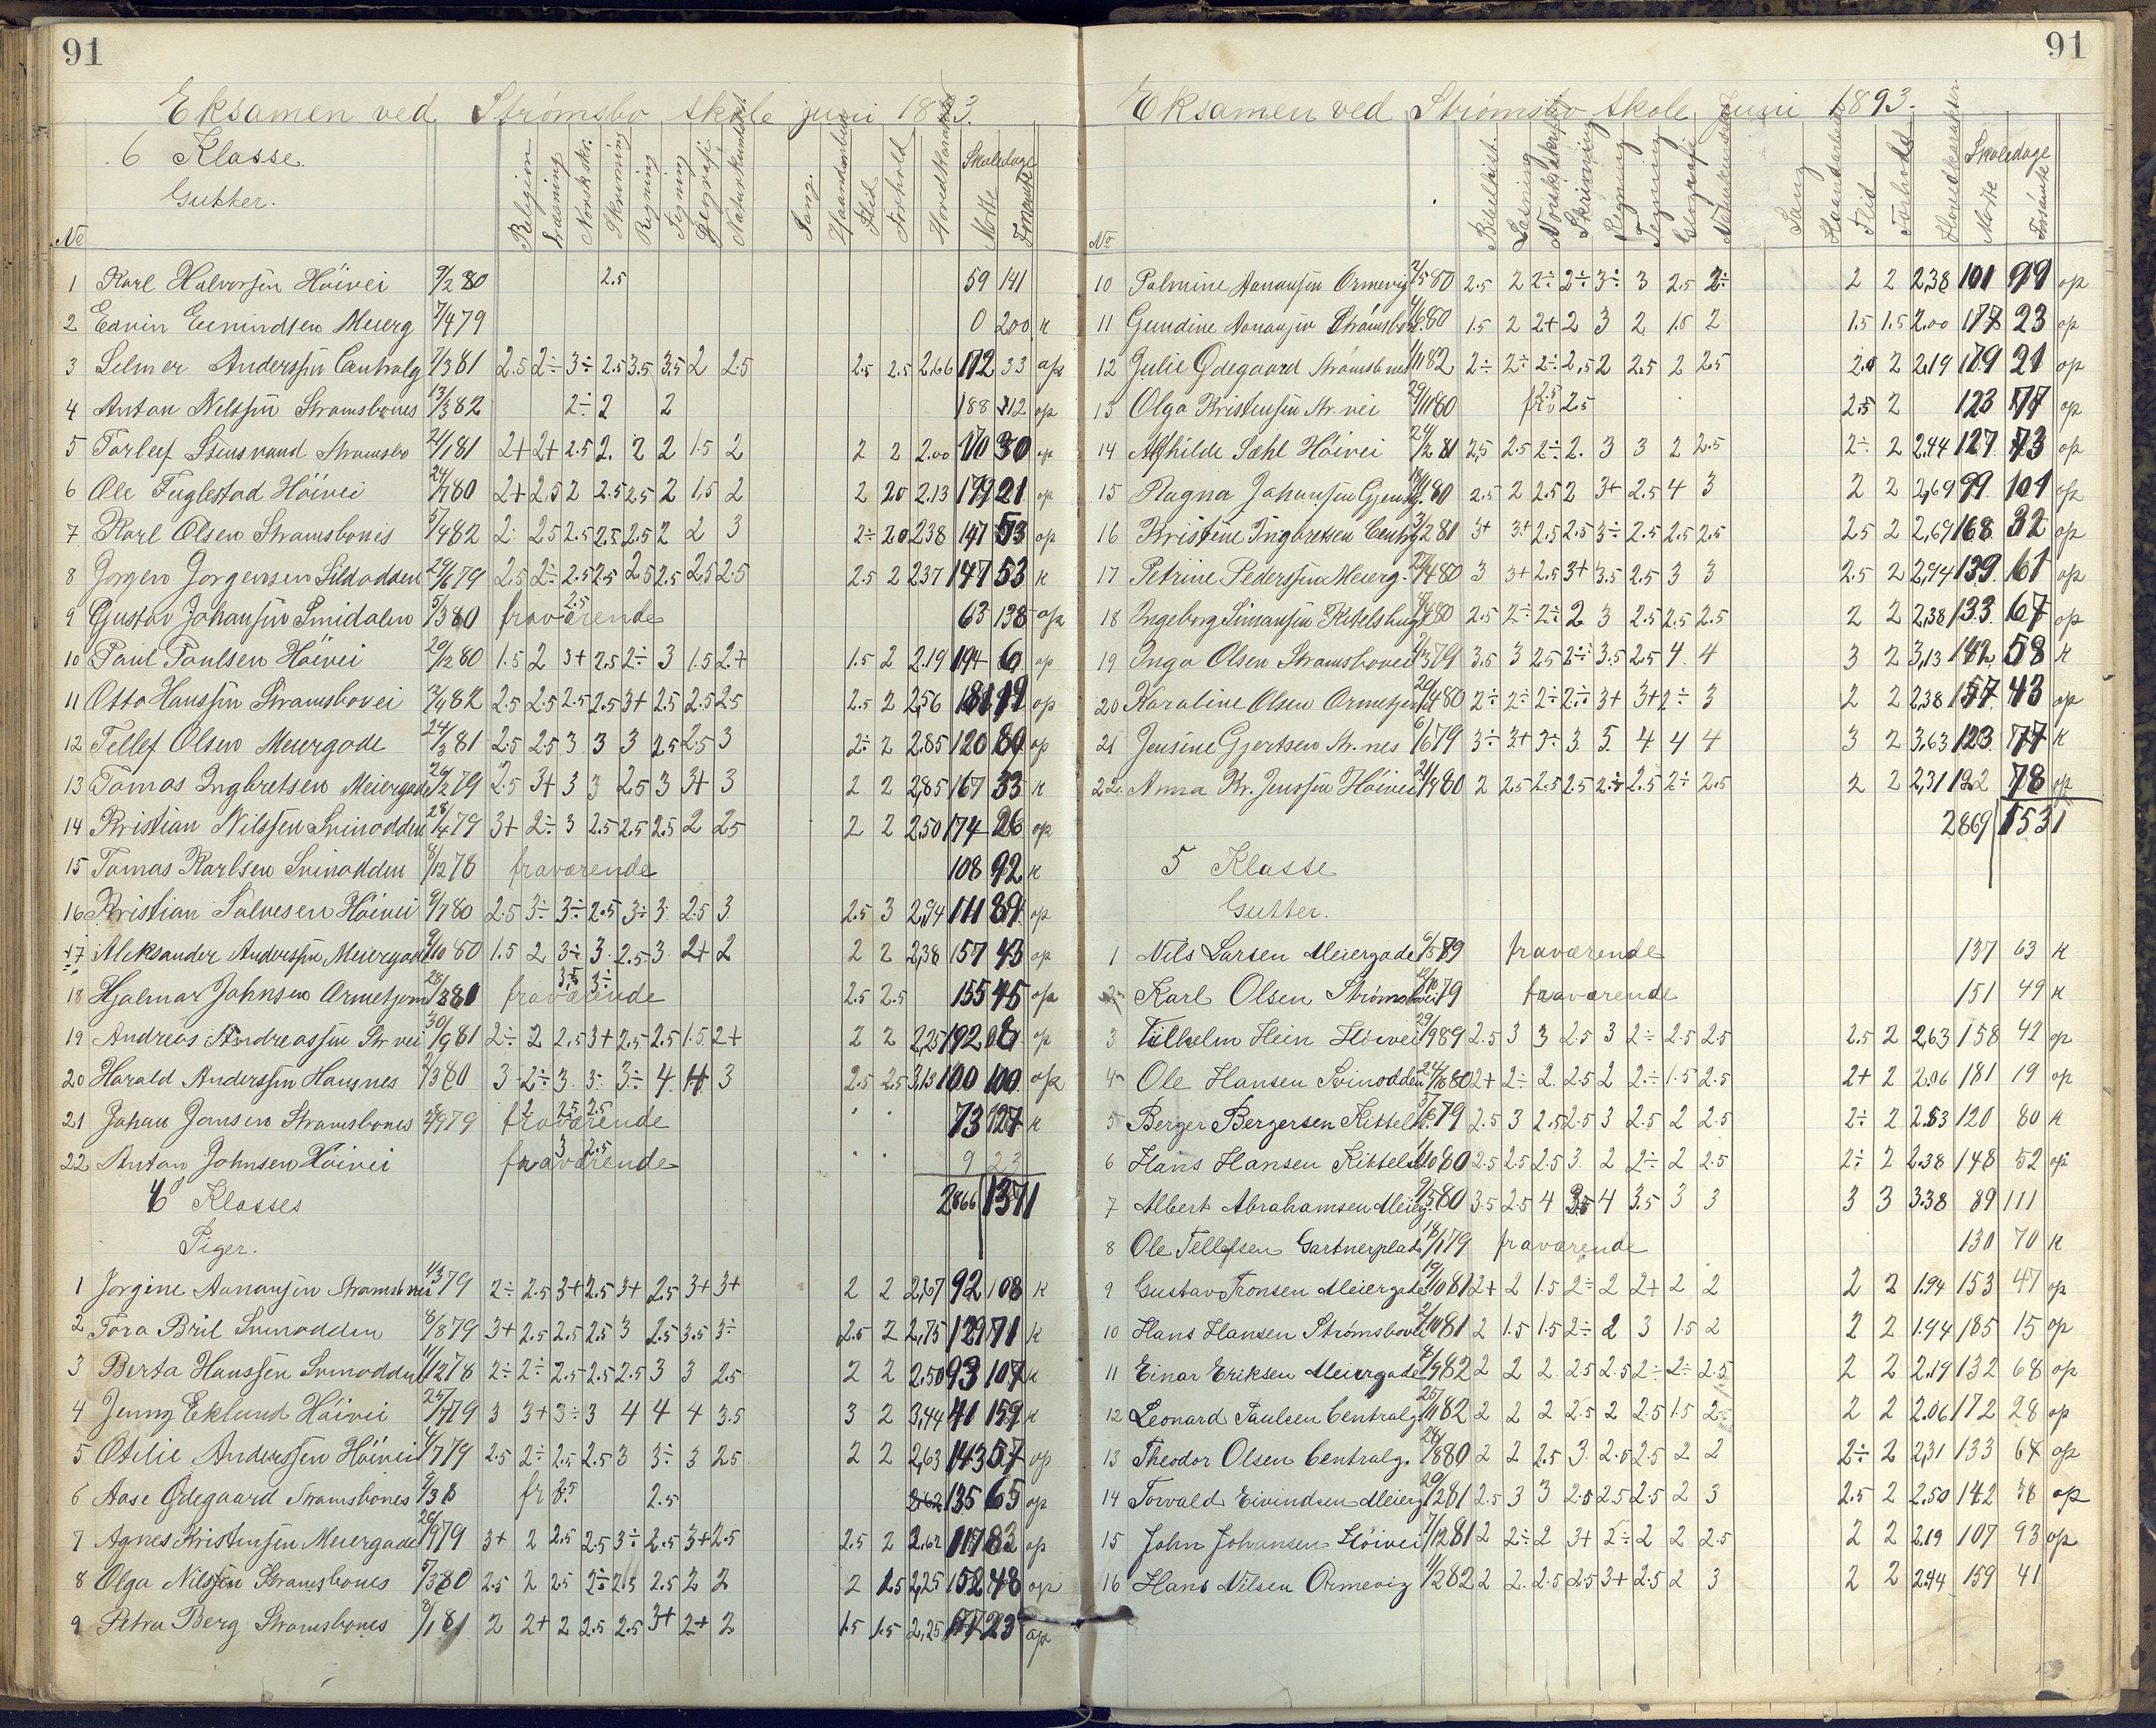 91
Eksamen ved Strømsbo skole juni 1893.
6 Klasse.
Gutter.
No Religion Læsning Norsk skr. Skrivning Regning Tegning Geografi Naturkundsk. Sang. Haandarbeide Flid Forhold Hovedkarakter Skoledage Møtte Forsømte
1 Karl Halvorsen Höivei 9/2 80 2.5 59 141
2 Edvin Eevindsen Meierg 7/4 79 0 200 k
3 Selmer Anderssen Centralg 7/3 81 2.5 2÷ 3÷ 2.5 3.5 3.5 2 2.5 2.5 2.5 2.66 172 33 op
4 Anton Nilssen Strømsbones 13/3 82 2÷ 2 2 188 12 op
5 Torleif Stensvand Strømsbo 21/1 81 2+ 2+ 2.5 2. 2 2 1.5 2 2 2 2.00 170 30 op
6 Ole Fuglestad Höivei 24/7 80 2+ 2.5 2 2.5 2.5 2 1.5 2 2 20 2.13 179 21 op
7 Karl Olsen Strømsbonis 5/4 82 2. 25 2.5 2.5 2.5 2 2 3 2÷ 20 238 147 53 op
8 Jorgen Jorgensen Sildodden 29/6 79 2.5 2÷ 2.5 2.5 2.5 2.5 2.5 2.5 2.5 2 237 147 53 k
9 Gustav Johansen Smidalen 5/3 80 fraværende 2.5 63 138 op
10 Paul Paulsen Höivei 20/12 80 1.5 2 3+ 2.5 2÷ 3 1.5 2+ 1.5 2 2.19 194 6 op
11 Otto Hanssen Strømsbovei 2/4 82 2.5 2.5 2.5 2.5 3+ 2.5 2.5 2.5 2.5 2 2,56 181 19 op
12 Tellef Olsen Meiergade 24/3 81 2.5 2.5 3 3 3 2.5 2.5 3 2÷ 2 2.85 120 80 op
13 Tomas Ingbretsen Meiergade 26/12 79 2.5 3+ 3 3 2.5 3 3+ 3 2 2 2,85 167 33 k
14 Kristian Nilssen Svinodden 28/4 79 3+ 2÷ 3 2.5 2.5 2.5 2 25 2 2 2.50 174 26 op
15 Tomas Karlsen Svinodden 8/12 78 fraværende 108 92 k
16 Kristian Salvesen Höivei 9/7 80 2.5 3÷ 3÷ 2.5 3÷ 3. 2.5 3 2.5 3 2,94 111 89 op
17 Aleksander Anderssen Meiergade 9/10 80 1.5 2 3÷ 3 2.5 3 2+ 2 2 2 2,38 157 43 op
18 Hjalmar Johnsen Ormetjern 28/8 80 fraværende 3.5 3÷ 2.5 2.5 155 45 op
19 Andreas Andreassen Str vei 30/9 81 2÷ 2 2.5 3+ 2.5 2.5 1.5 2+ 2 2 2,25 192 08 op
20 Harald Anderssen Hausnes 2/3 80 3 2÷ 3 3. 3÷ 4 4 3 2.5 2.5 3.13 100 100 op
21 Johan Jansen Strømsbones 28/9 79 fraværende 2 2.5 2.5 73 127 k
22 Anton Johnsen Höivei fraværende 3 2.5 9 23
2866 1371
6 Klasses
Piger.
1 Jorgine Aanansen Strømsbnes 1/3 79 2÷ 2.5 3+ 2.5 3+ 2.5 3+ 3+ 2 2 2,67 92 108 k
2 Tora Bril Svinodden 8/8 79 3+ 2.5 2.5 2.5 3 2.5 3.5 3÷ 2.5 2 2,75 129 71 k
3 Berta Hanssen Svinodden 11/12 78 2÷ 2÷ 2.5 2.5 2.5 3 3 2.5 2 2 2.50 93 107 k
4 Jenny Eklund Höivei 25/7 79 3 3+ 3÷ 3 4 4 4 3.5 3 2 3,44 41 159 k
5 Otilie Anderssen Höivei 4/7 79 2.5 2÷ 2.5 2.5 3 3÷ 3 25 2 2 2,63 143 57 op
6 Aase Ødegaard Strømsbones 9/3 8 fr 2.5 2.5 2.62 135 65 op
7 Agnes Kristensen Meiergade 26/9 79 3+ 2 2.5 2.5 3÷ 2.5 3+ 2.5 2.5 2 2,62 117 83 op
8 Olga Nilssen Strømsbones 5/3 80 2.5 2 2.5 2÷ 2.5 2.5 2 2 2 1.5 2,25 152 48 op
9 Petra Berg Strømsbones 8/1 81 2 2+ 2 2.5 2.5 3+ 2+ 2 1.5 1.5 2,25 177 23 op
91
Eksamen ved Strømsbo skole, Juni 1893.
No Bibelhist. Læsning Norsk skriftlig Skrivning Regning Tegning Geografi Naturkundskab Sang Haandarbeide Flid Forhold Hovedkarakter Skoledage Møtte Forsømte
10 Palmine Aanansen Ormevig 2/5 80 2.5 2 2÷ 2÷ 3÷ 3 2.5 2÷ 2 2 2,38 101 99 op
11 Gundine Aanansen Strømsbo 4/6 80 1.5 2 2+ 2 3 2 1.5 2 1.5 1.5 2.00 177 23 op
12 Julie Ødegaard Strømsbnes 1/11 82 2÷ 2÷ 2÷ 2,5 2 2.5 2 2.5 2.0 2 2,19 179 21 op
13 Olga Kristensen Str. vei 29/11 80 frv 2.5 2.5 2.5 2 123 77 op
14 Alfhilde Sæhl Höivei 24/2 81 2,5 2.5 2÷ 2. 3 3 2 2.5 2÷ 2 2.44 127 73 op
15 Ragna Johansen Gjennes 18/11 80 2.5 2 2.5 2 3+ 2.5 4 3 2 2 2,69 99 101 op
16 Kristine Ingbretsen Centrg 3/2 81 3+ 3+ 2.5 2.5 3÷ 2.5 2.5 2.5 2.5 2 2,69 168 32 op
17 Petrine Pederssen Meierg. 27/4 80 3 3+ 2.5 3+ 3.5 2.5 3 3 2.5 2 2,94 139 61 op
18 Ingeborg Simonsen Kittelsbugt 8/4 80 2.5 2÷ 2÷ 2 3 2.5 2.5 2.5 2 2 2,38 133 67 op
19 Inga Olsen Strømsbovei 2/3 79 3.5 3 2.5 2÷ 3.5 2.5 4 4 3 2 3,13 142 58 k
20 Karoline Olsen Ormetjern 20/4 80 2÷ 2÷ 2÷ 2÷ 3+ 3+ 2÷ 3 2 2 2,38 157 43 op
21 Jensine Gjertsen Str. nes 6/6 79 3÷ 3+ 3÷ 3 5 4 4 4 3 2 3,63 123 77 k
22 Anna Kr. Jenssen Höivei 21/9 80 2 2.5 2.5 2.5 2÷ 2.5 2÷ 2.5 2 2 2,31 122 78 op
2869 1531
5 Klasse
Gutter.
1 Nils Larsen Meiergade 6/5 89 fraværende 137 63 k
2 Karl Olsen Strømsbovei 12/10 79 fraværende 151 49 k
3 Vilhelm Hein Höivei 29/9 89 2.5 3 3 2.5 3 2÷ 2.5 2.5 2.5 2 2,63 158 42 op
4 Ole Hansen Svinodden 24/6 80 2+ 2÷ 2. 2.5 2 2÷ 1.5 2.5 2+ 2 2.06 181 19 op
5 Berger Bergersen Kittel 5/6 79 2.5 3 2.5 2.5 3 2.5 2 2.5 2÷ 2 2.53 120 80 k
6 Hans Hansen Kittels 1/10 80 2.5 2.5 2.5 3. 2 2÷ 2 2.5 2÷ 2 2.38 148 52 op
7 Albert Abrahamsen Meierg. 9/5 80 3.5 2.5 4 3.5 4 3.5 3 3 3 3 3.38 89 111
8 Ole Tellefsen Gartnerplads 18/1 79 fraværende 130 70 k
9 Gustav Tronsen Meiergade 19/10 81 2+ 2 1.5 2÷ 2 2+ 2 2 2 2 1.94 153 47 op
10 Hans Hansen Strømsbovei 2/10 81 2 1.5 1.5 2÷ 2 3 1.5 2 2 2 1.94 185 15 op
11 Einar Eriksen Meiergade 8/9 82 2 2 2 2.5 2.5 2÷ 2÷ 2.5 2 2 2.19 132 68 op
12 Leonard Paulsen Centralg. 25/11 82 2 2 2 2.5 2 2.5 1.5 2÷ 2 2 2.06 172 28 op
13 Theodor Olsen Centralg. 28/8 80 2 2 2.5 3. 2.5 2.5 2 2 2÷ 2 2,31 133 67 op
14 Torvald Eivindsen Meierg 20/2 81 2.5 3 3 2.5 2.5 2.5 2 3 2.5 2 2.50 142 58 op
15 John Johansen Höivei 7/12 81 2 2÷ 2 3+ 2÷ 2 2 2.5 2 2 2.19 107 93 op
16 Hans Nilsen Ormevig 11/2 82 2 2. 2.5 2.5 3+ 2.5 2 3 2 2 2.44 159 41